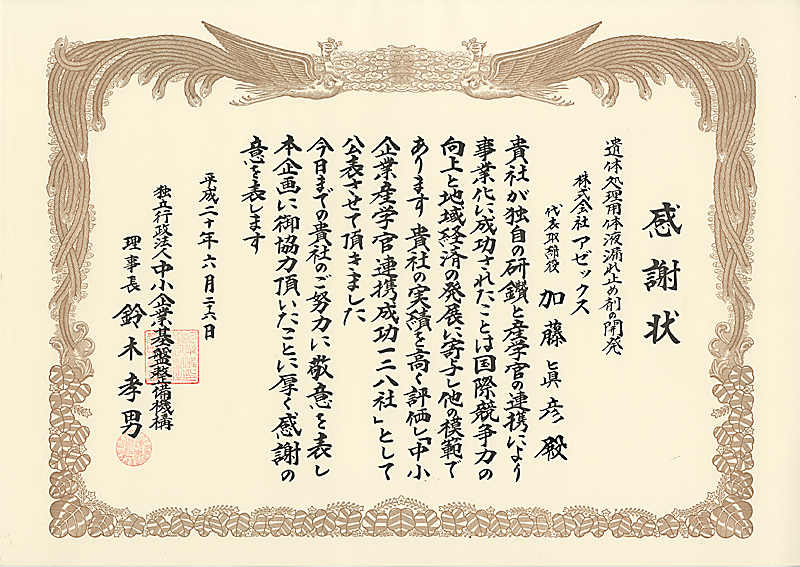 感謝状
遺体処理用体液漏れ止め剤の開発
株式会社アゼックス
代表取締役 加藤眞彦殿
貴社が独自の研鑽と産学官の連携により
事業化に成功されたことは国際競争力の
向上と地域経済の発展に寄与し他の模範で
あります 貴社の実績を高く評価し「中小
企業産学官連携成功一二八社」として
公表させて頂きました
今日までの貴社のご努力に敬意を表し
本企画に御協力頂いたことに厚く感謝の
意を表します
平成二十年六月二十六日
独立行政法人中小企業基盤整備機構
理事長 鈴木孝男